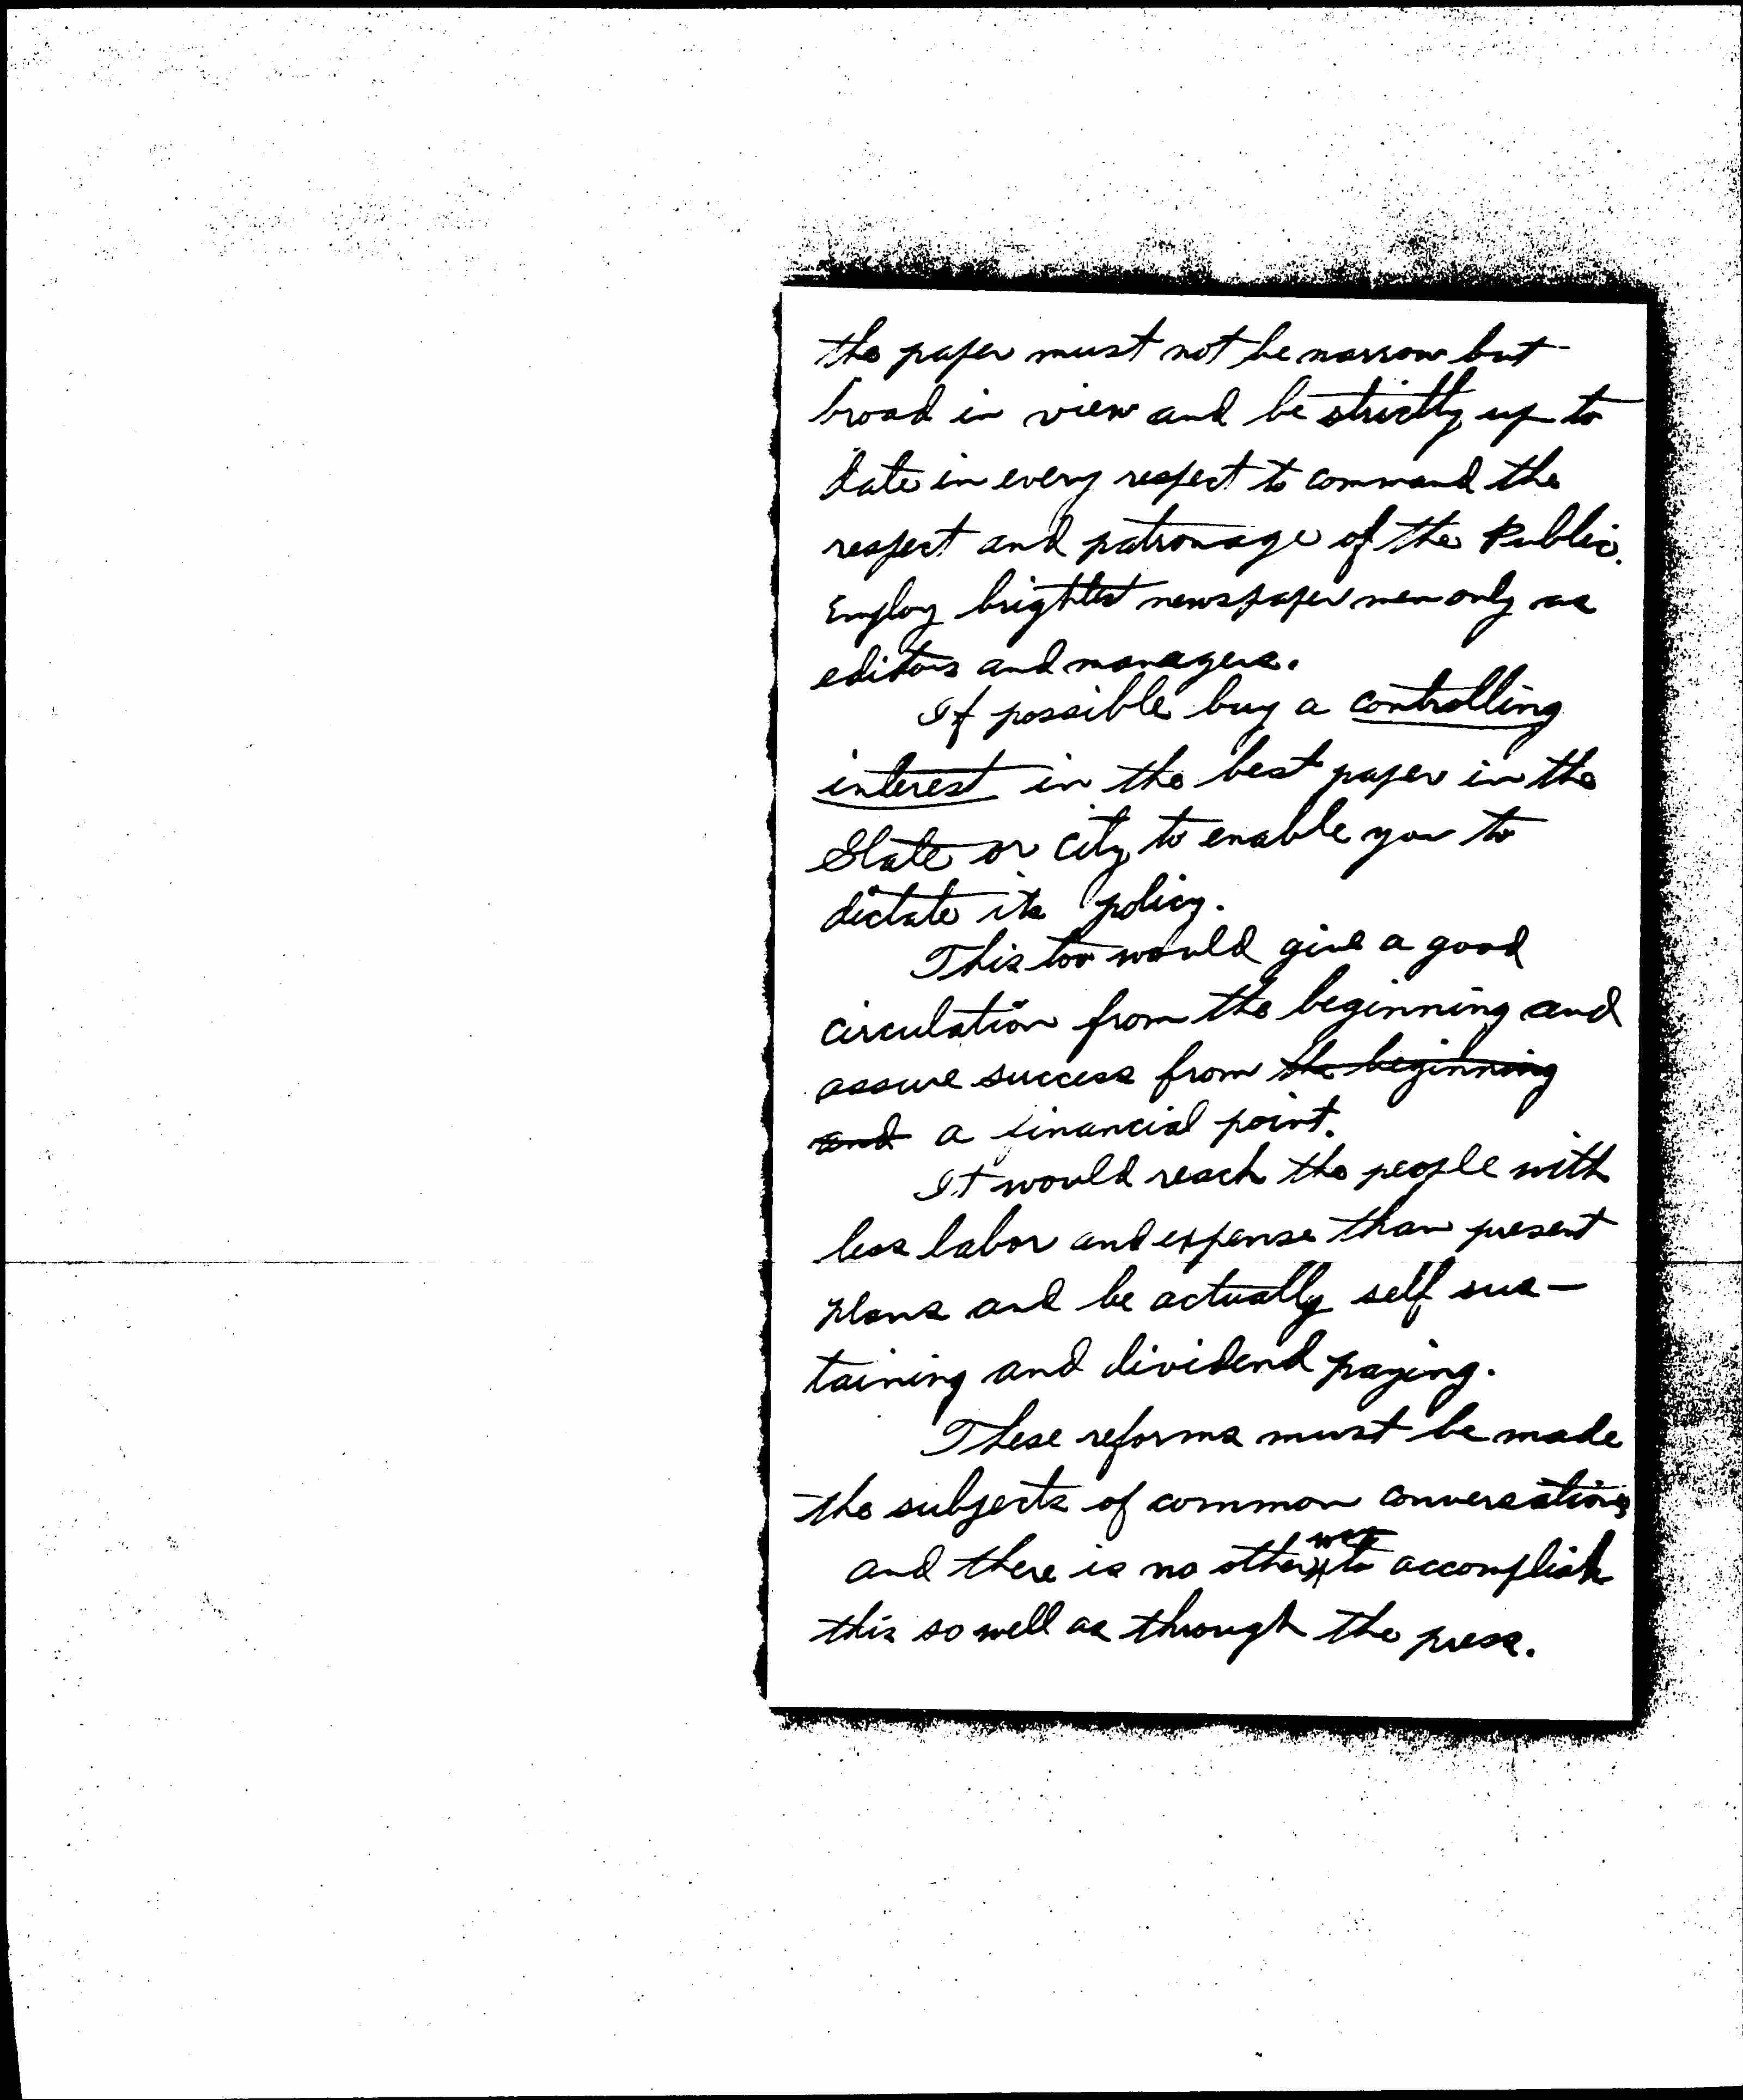 the paper must not be narrow but
broad in view and be strictly up to
date in every respect to command the
respect and patronage of the Public.
Employ brightest newspaper men only as
editors and managers.
If possible buy a controlling
interest in the best paper in the
State or city to enable you to
dictate its policy.
This too would give a good
circulation from the beginning and
assure success from the beginning
and a financial point.
It would reach the people with
less labor and expense than present
plans and be actually self sus-
taining and dividend paying.
These reforms must be made
the subjects of common conversations
way
and there is no other to accomplish
this so well as through the press.